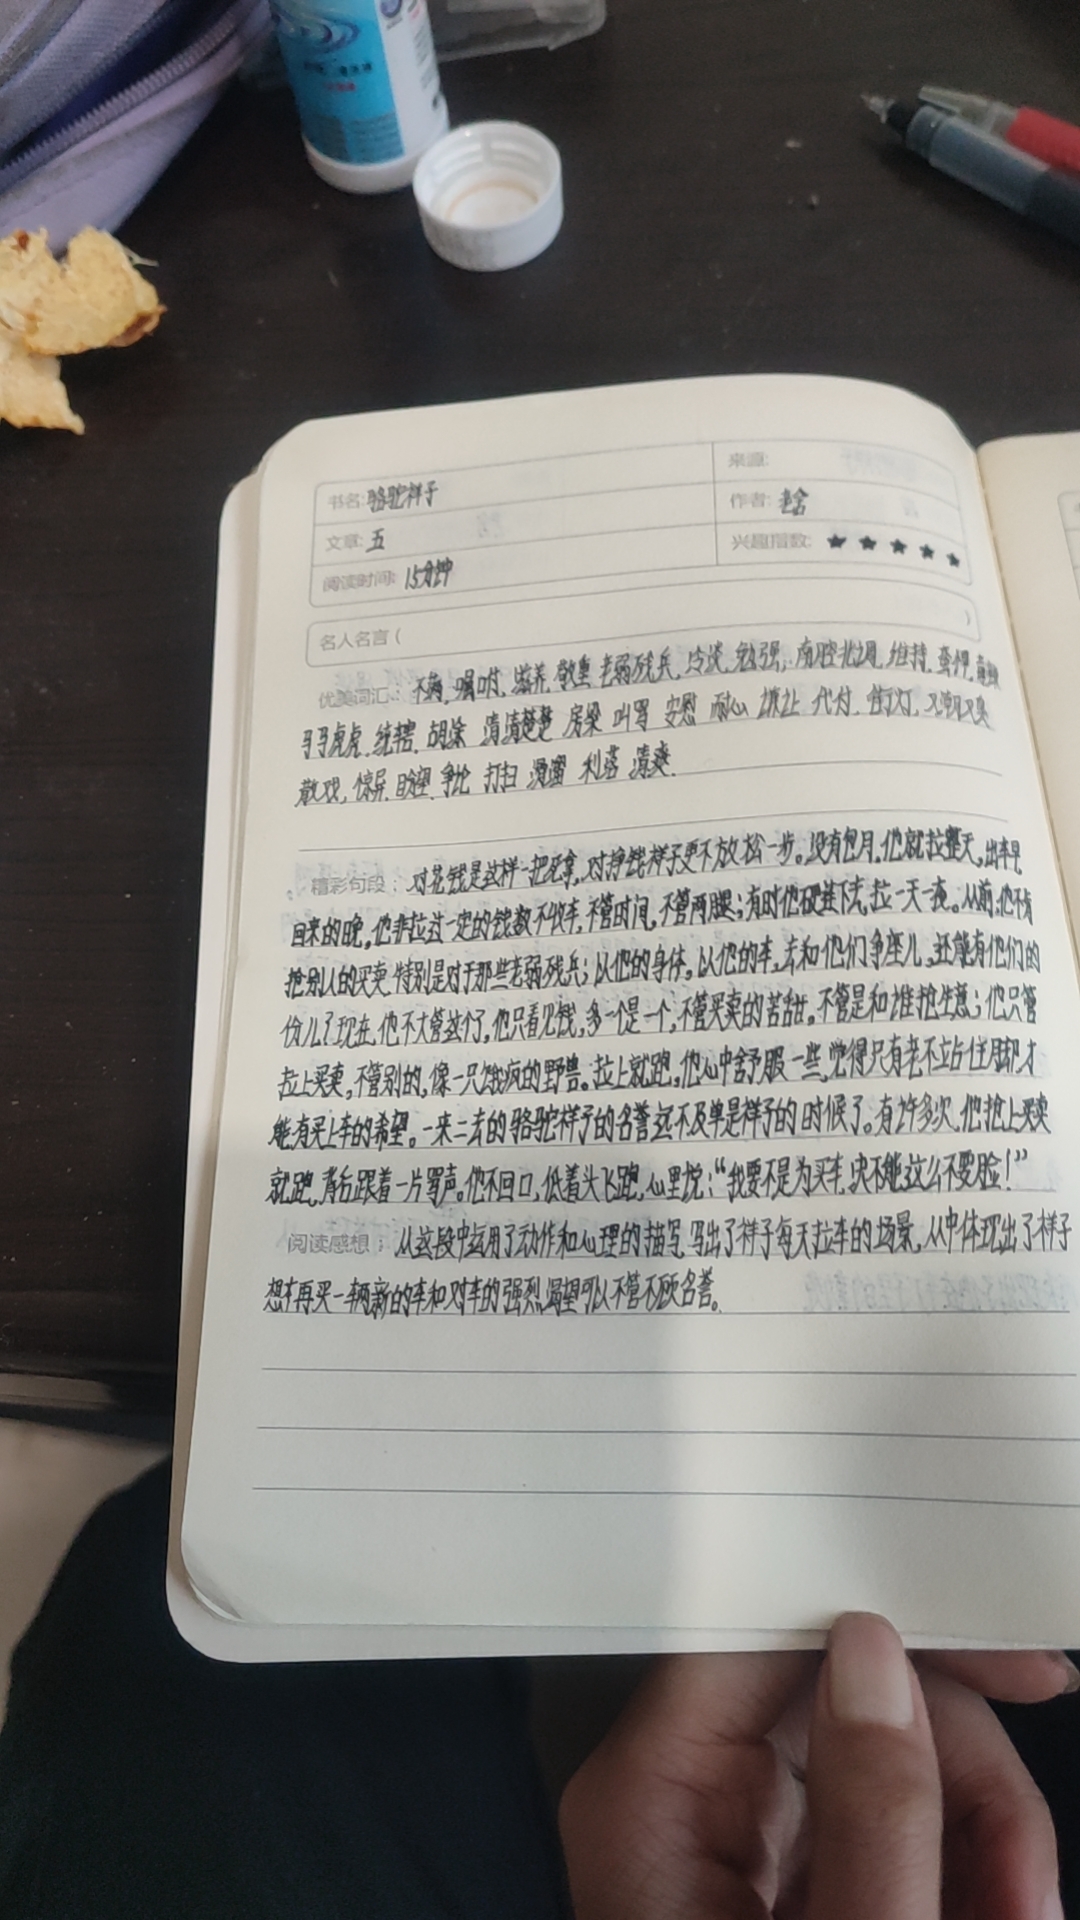 书名:骆驼祥子
来源:
作者:老舍
文章:五
兴趣指数:★★★★★
阅读时间:15分钟
名人名言( )
优美词汇: 嘱咐 滋养 敬重 老弱残兵 冷淡 勉强 南腔北调 维持
马马虎虎 统辖 胡涂 清清楚楚 房梁 叫骂 安慰 耐心 代付 街灯
散戏 惊异 盼望 争论 打扫 滑溜 利落 清爽
精彩句段: 对花钱是这样一把死拿,对挣钱祥子更不放松一步。没有包月,他就拉整天,出车早,
回来的晚,他非拉过一定的钱数不收车,不管时间,不管两腿;有时他硬连下去,拉一天一夜。从前,他不肯
抢别人的买卖,特别是对于那些老弱残兵;以他的身体,以他的车,去和他们争座儿,还能有他们的
份儿?现在,他不大管这个了,他只看见钱,多一个是一个,不管买卖的苦甜,不管是和谁抢生意;他只管
拉上买卖,不管别的,像一只饿疯的野兽。拉上就跑,他心中舒服一些,觉得只有老不站住脚才
能有买上车的希望。一来二去的骆驼祥子的名誉远不及单是祥子的时候了。有许多次,他抢上买卖
就跑,背后跟着一片骂声。他不回口,低着头飞跑,心里说:“我要不是为买车,决不能这么不要脸!”
阅读感想: 从这段中运用了动作和心理的描写,写出了祥子每天拉车的场景,从中体现出了祥子
想再买一辆新的车和对车的强烈渴望可以不管不顾名誉。